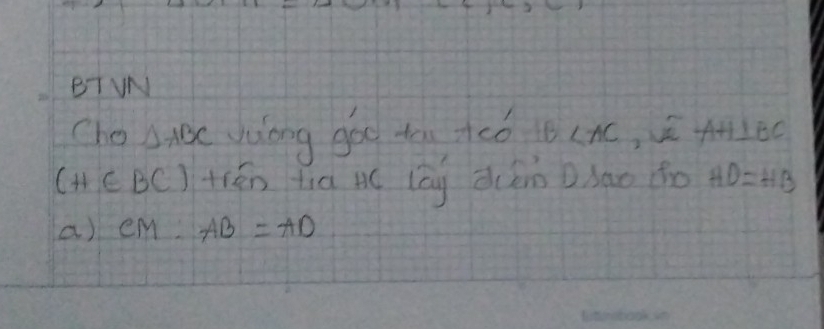 BTVN
Cho △ABC vuông góc tại A có AB < AC, vẽ AH⊥BC
(H ∈ BC) trên tia HC lấy điểm D sao cho HD=HB
a) CM : AB = AD